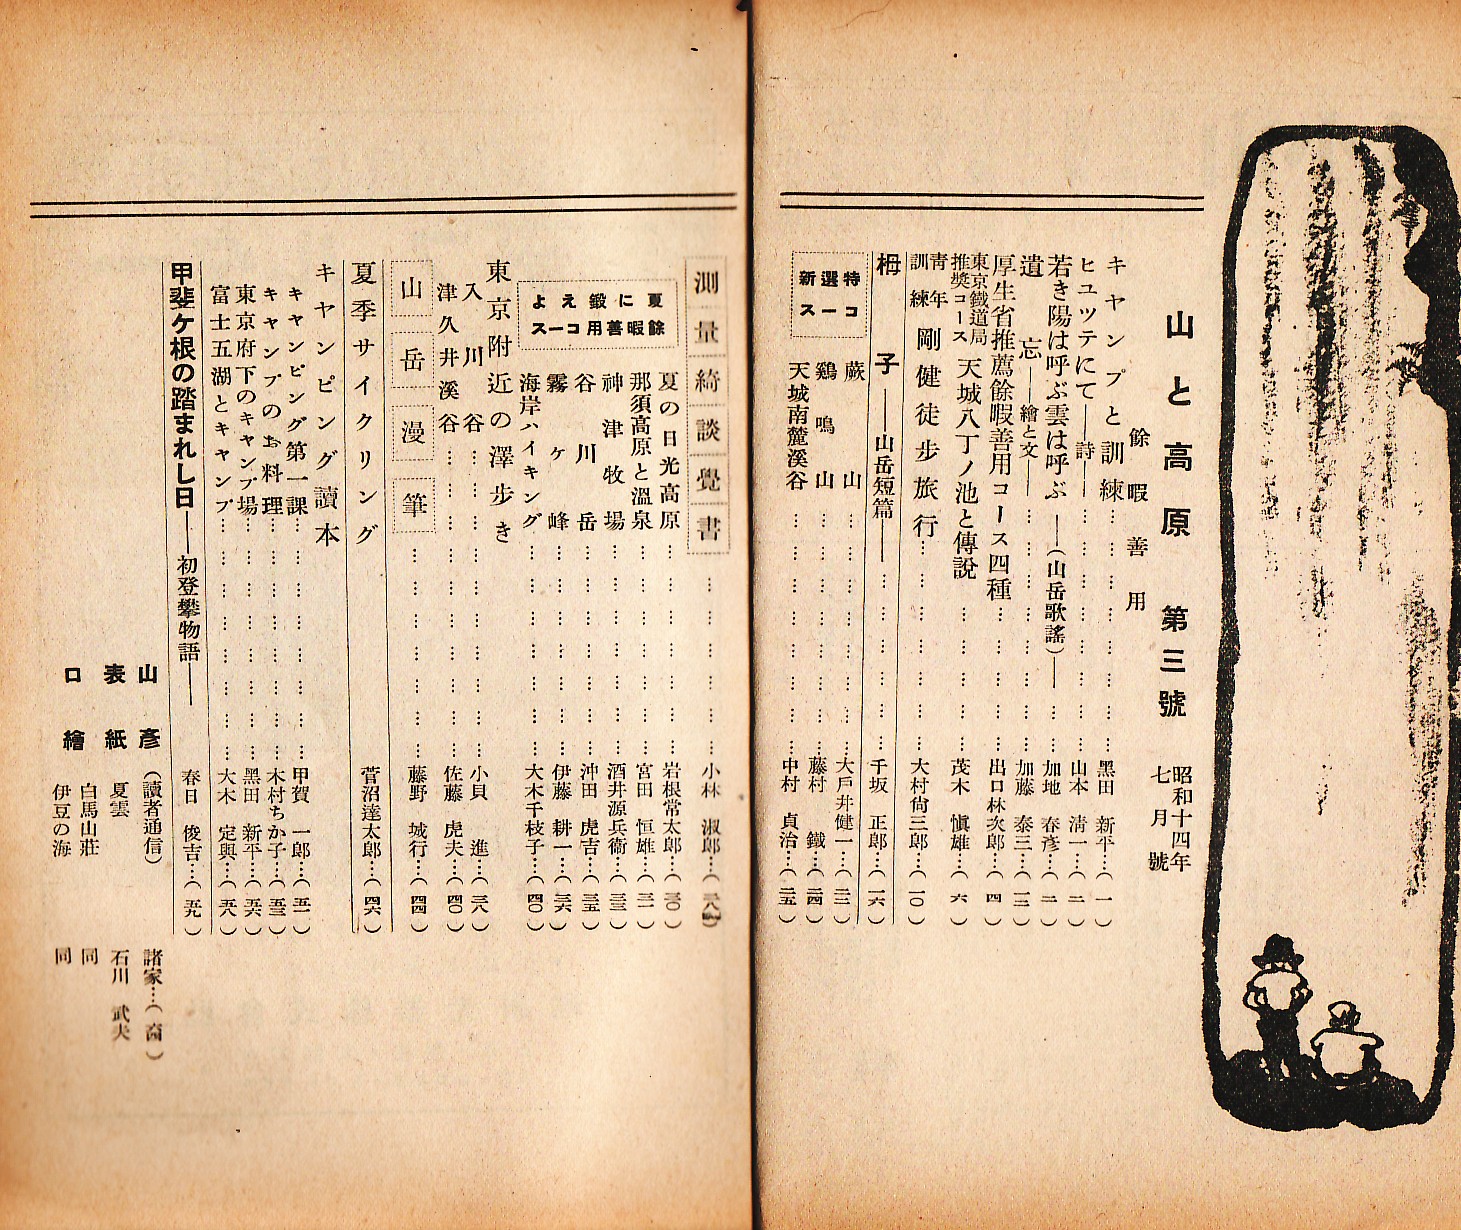 山と高原 第三號
昭和十四年
七月號
餘暇善用
キヤンプと訓練………………黑田 新平…(一)
ヒユツテにて――詩――………………山本 淸一…(二)
若き陽は呼ぶ雲は呼ぶ――(山岳歌謠)――………加地 春彥…(二)
遺忘――繪と文――………………加藤 泰三…(一二)
厚生省推薦餘暇善用コース四種………………出口林次郎…(四)
東京鐵道局
推奬コース
天城八丁ノ池と傳說………………茂木 愼雄…(六)
靑年
訓練
剛健徒步旅行………………大村尙三郎…(一〇)
栂子――山岳短篇――………………千坂 正郎…(一六)
特選新
コース
蕨山………………大戶井健一…(二二)
鷄鳴山………………藤村 鐵…(二四)
天城南麓溪谷………………中村 貞治…(二五)
測量綺談覺書………………小林 淑郎…(二八)
夏に鍛えよ
餘暇善用コース
夏の日光高原………………岩根常太郎…(三〇)
那須高原と溫泉………………宮田 恒雄…(三一)
神津牧場………………酒井源兵衞…(三三)
谷川岳………………沖田 虎吉…(三五)
霧ヶ峰………………伊藤 耕一…(三六)
海岸ハイキング………………大木千枝子…(四〇)
東京附近の澤步き
入川谷………………小貝 進…(三八)
津久井溪谷………………佐藤 虎夫…(四〇)
山岳漫筆………………藤野 城行…(四四)
夏季サイクリング
菅沼達太郎…(四六)
キヤンピング讀本
キャンピング第一課………………甲賀 一郎…(五一)
キャンプのお料理………………木村ちか子…(五三)
東京府下のキャンプ場………………黑田 新平…(五六)
富士五湖とキャンプ………………大木 定與…(五八)
甲斐ケ根の踏まれし日――初登攀物語――
春日 俊吉…(五九)
山彥(讀者通信) 諸家…
表紙 夏雲 石川 武夫
口繪 白馬山莊 同
伊豆の海 同